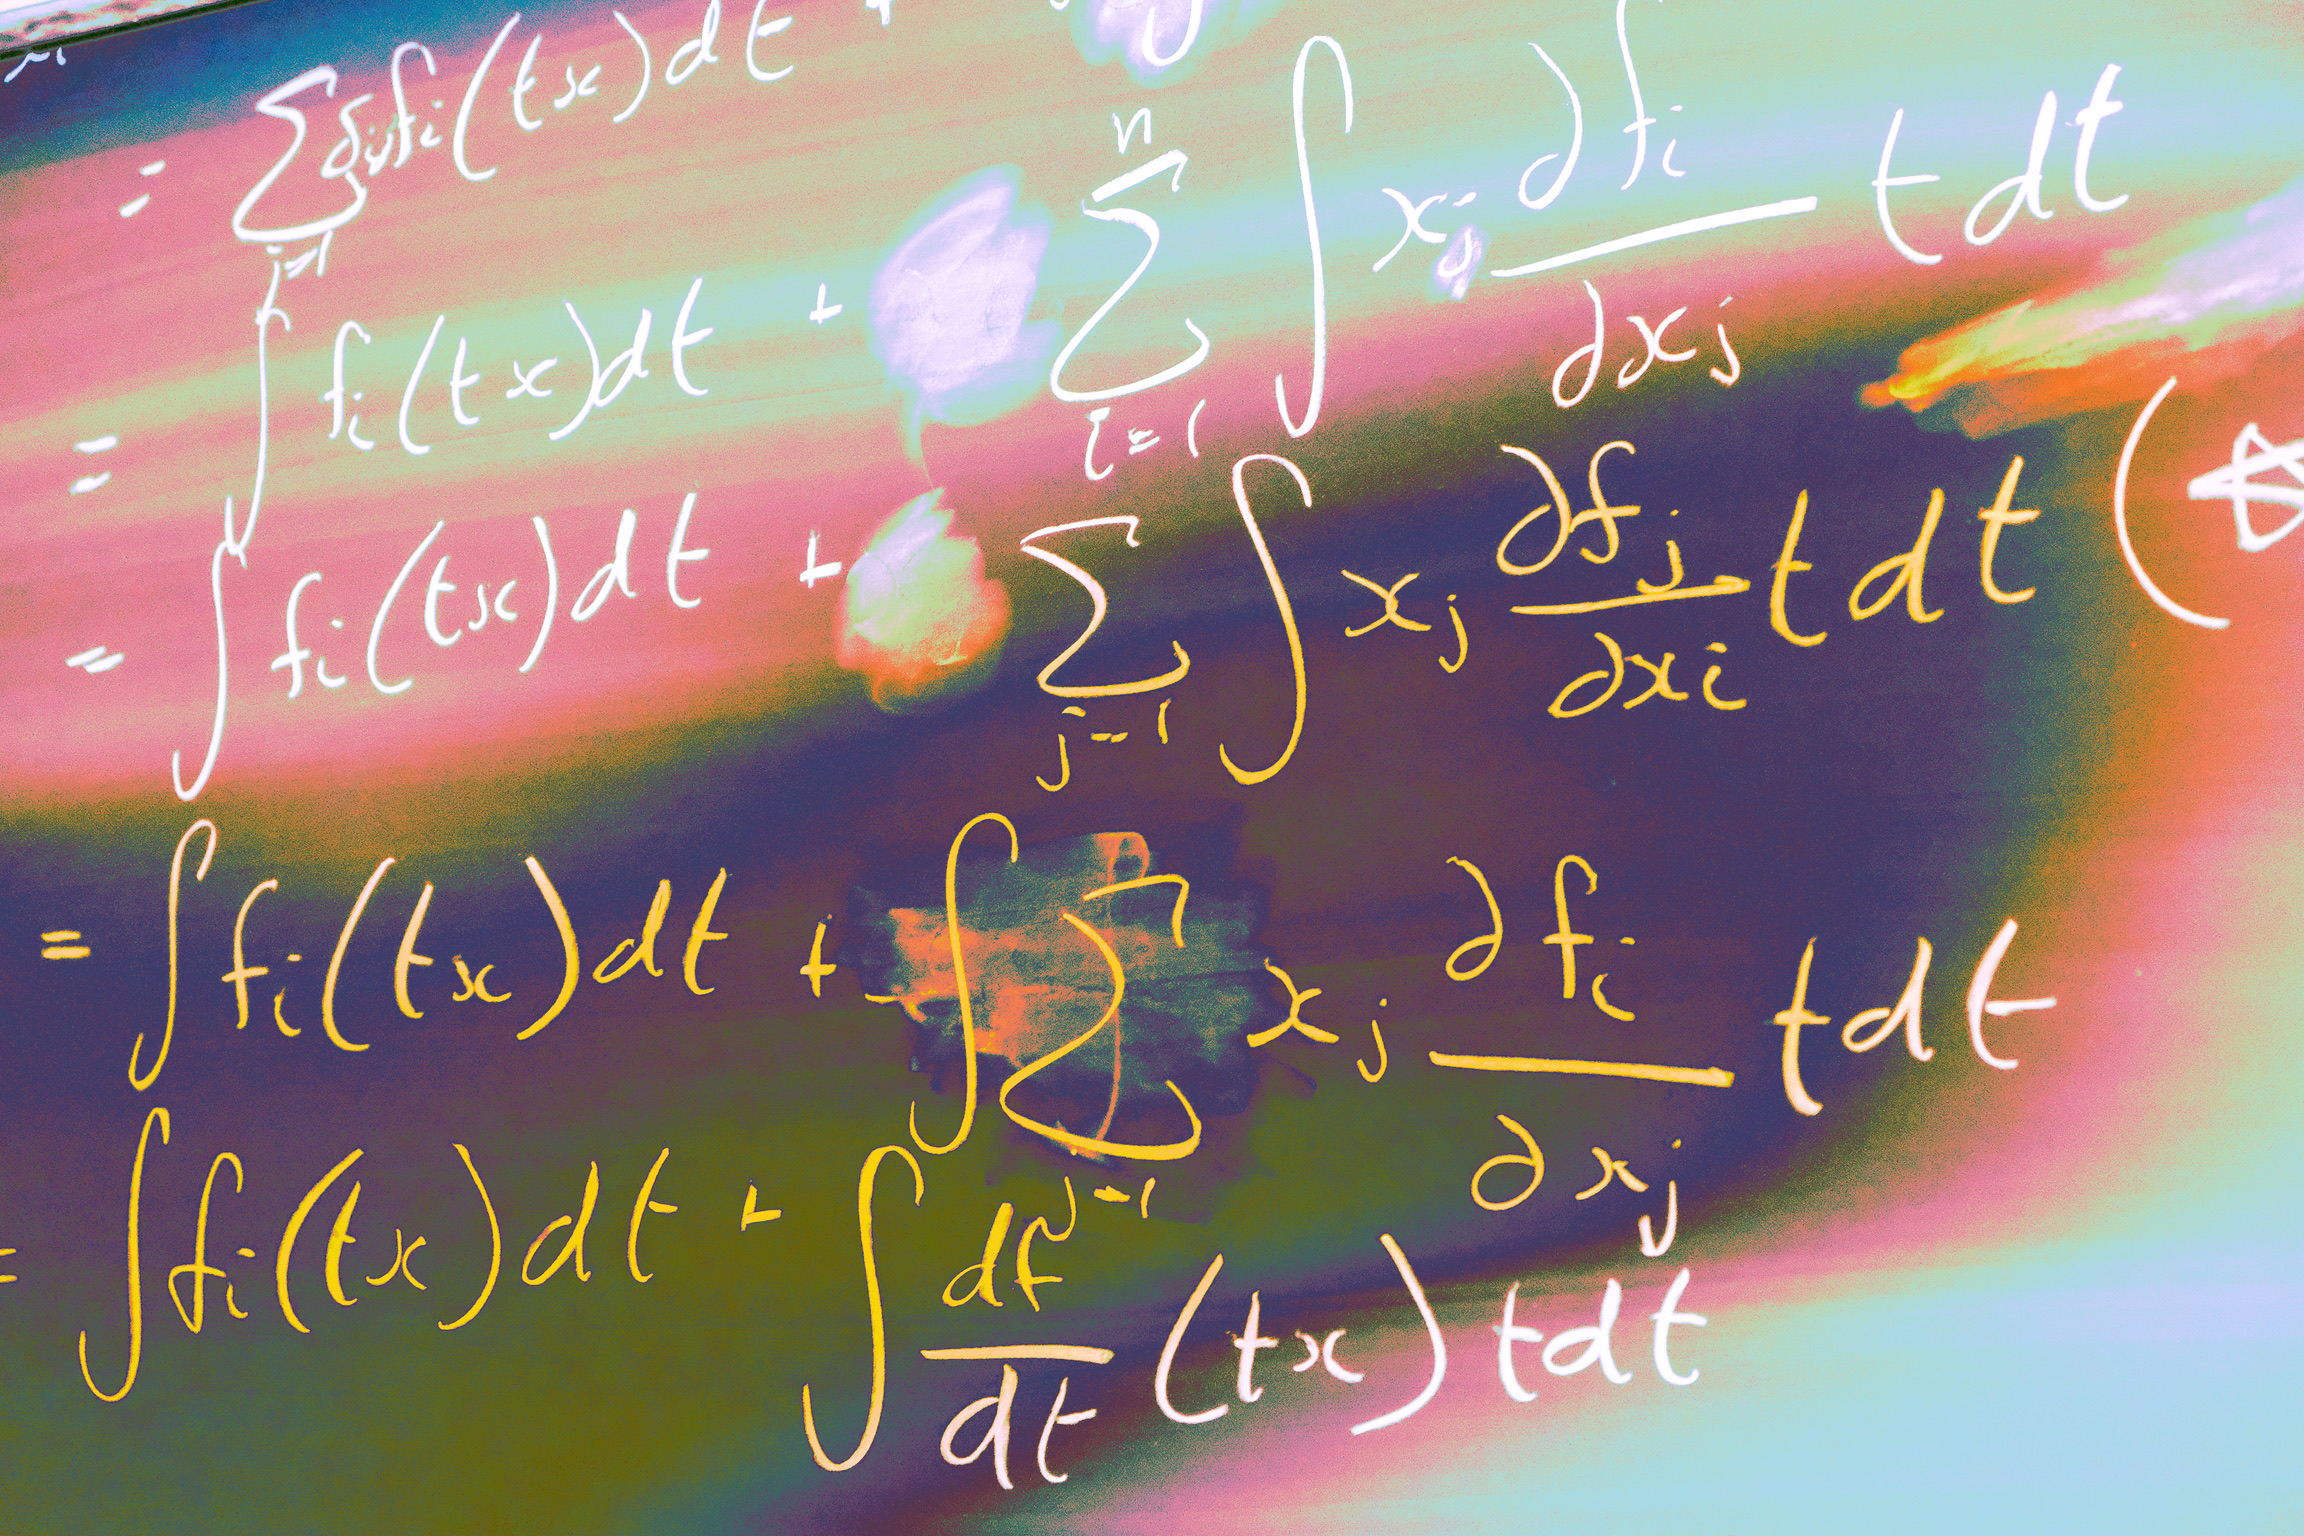 = ∑_{j=1} δ_{ij} f_i(tx)dt +
= ∫ f_i(tx)dt + ∑_{i=1}^{n} ∫ x_j ∂f_i/∂x_j t dt
= ∫ f_i(tx)dt + ∑_{j=1} ∫ x_j ∂f_j/∂x_i t dt (☆
= ∫ f_i(tx)dt + ∫ ∑_{j=1} x_j ∂f_i/∂x_j t dt
= ∫ f_i(tx)dt + ∫ df/dt (tx) t dt